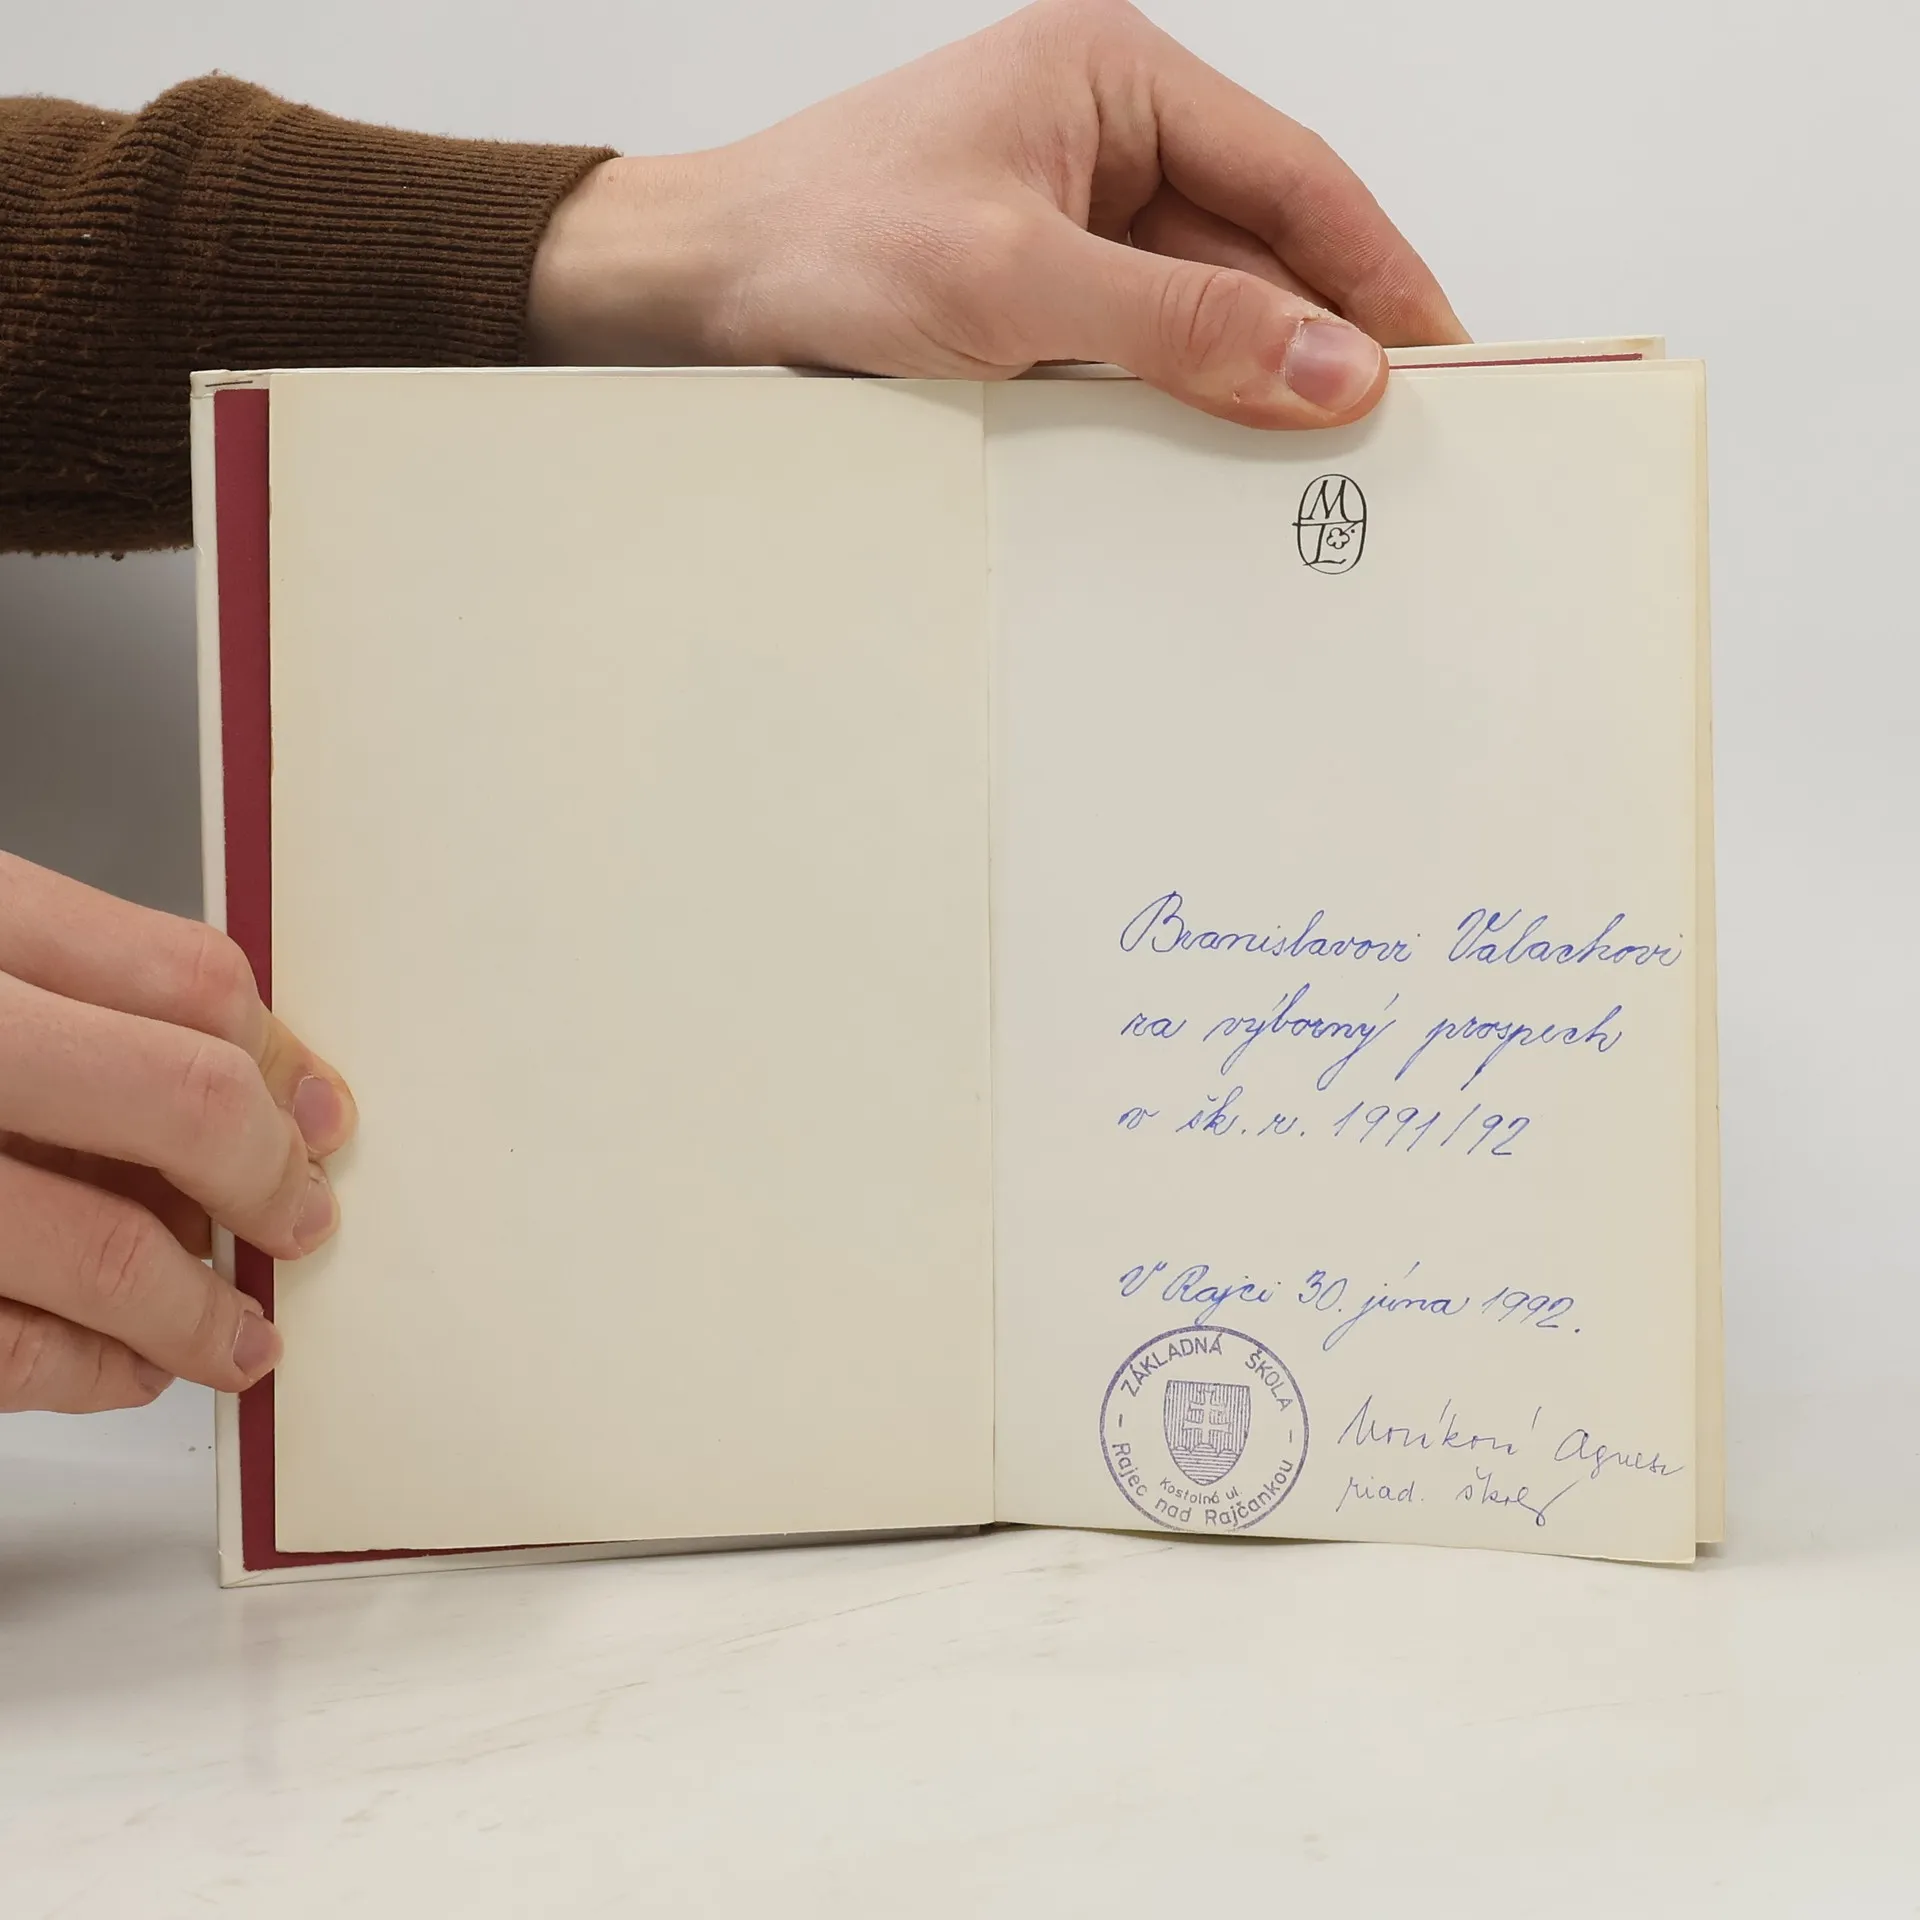 ML
Branislavovi Valachovi
za výborný prospech
v šk. r. 1991/92
V Rajci 30. júna 1992.
ZÁKLADNÁ ŠKOLA
Kostolná ul.
Rajec nad Rajčankou
Agnesa
riad. školy